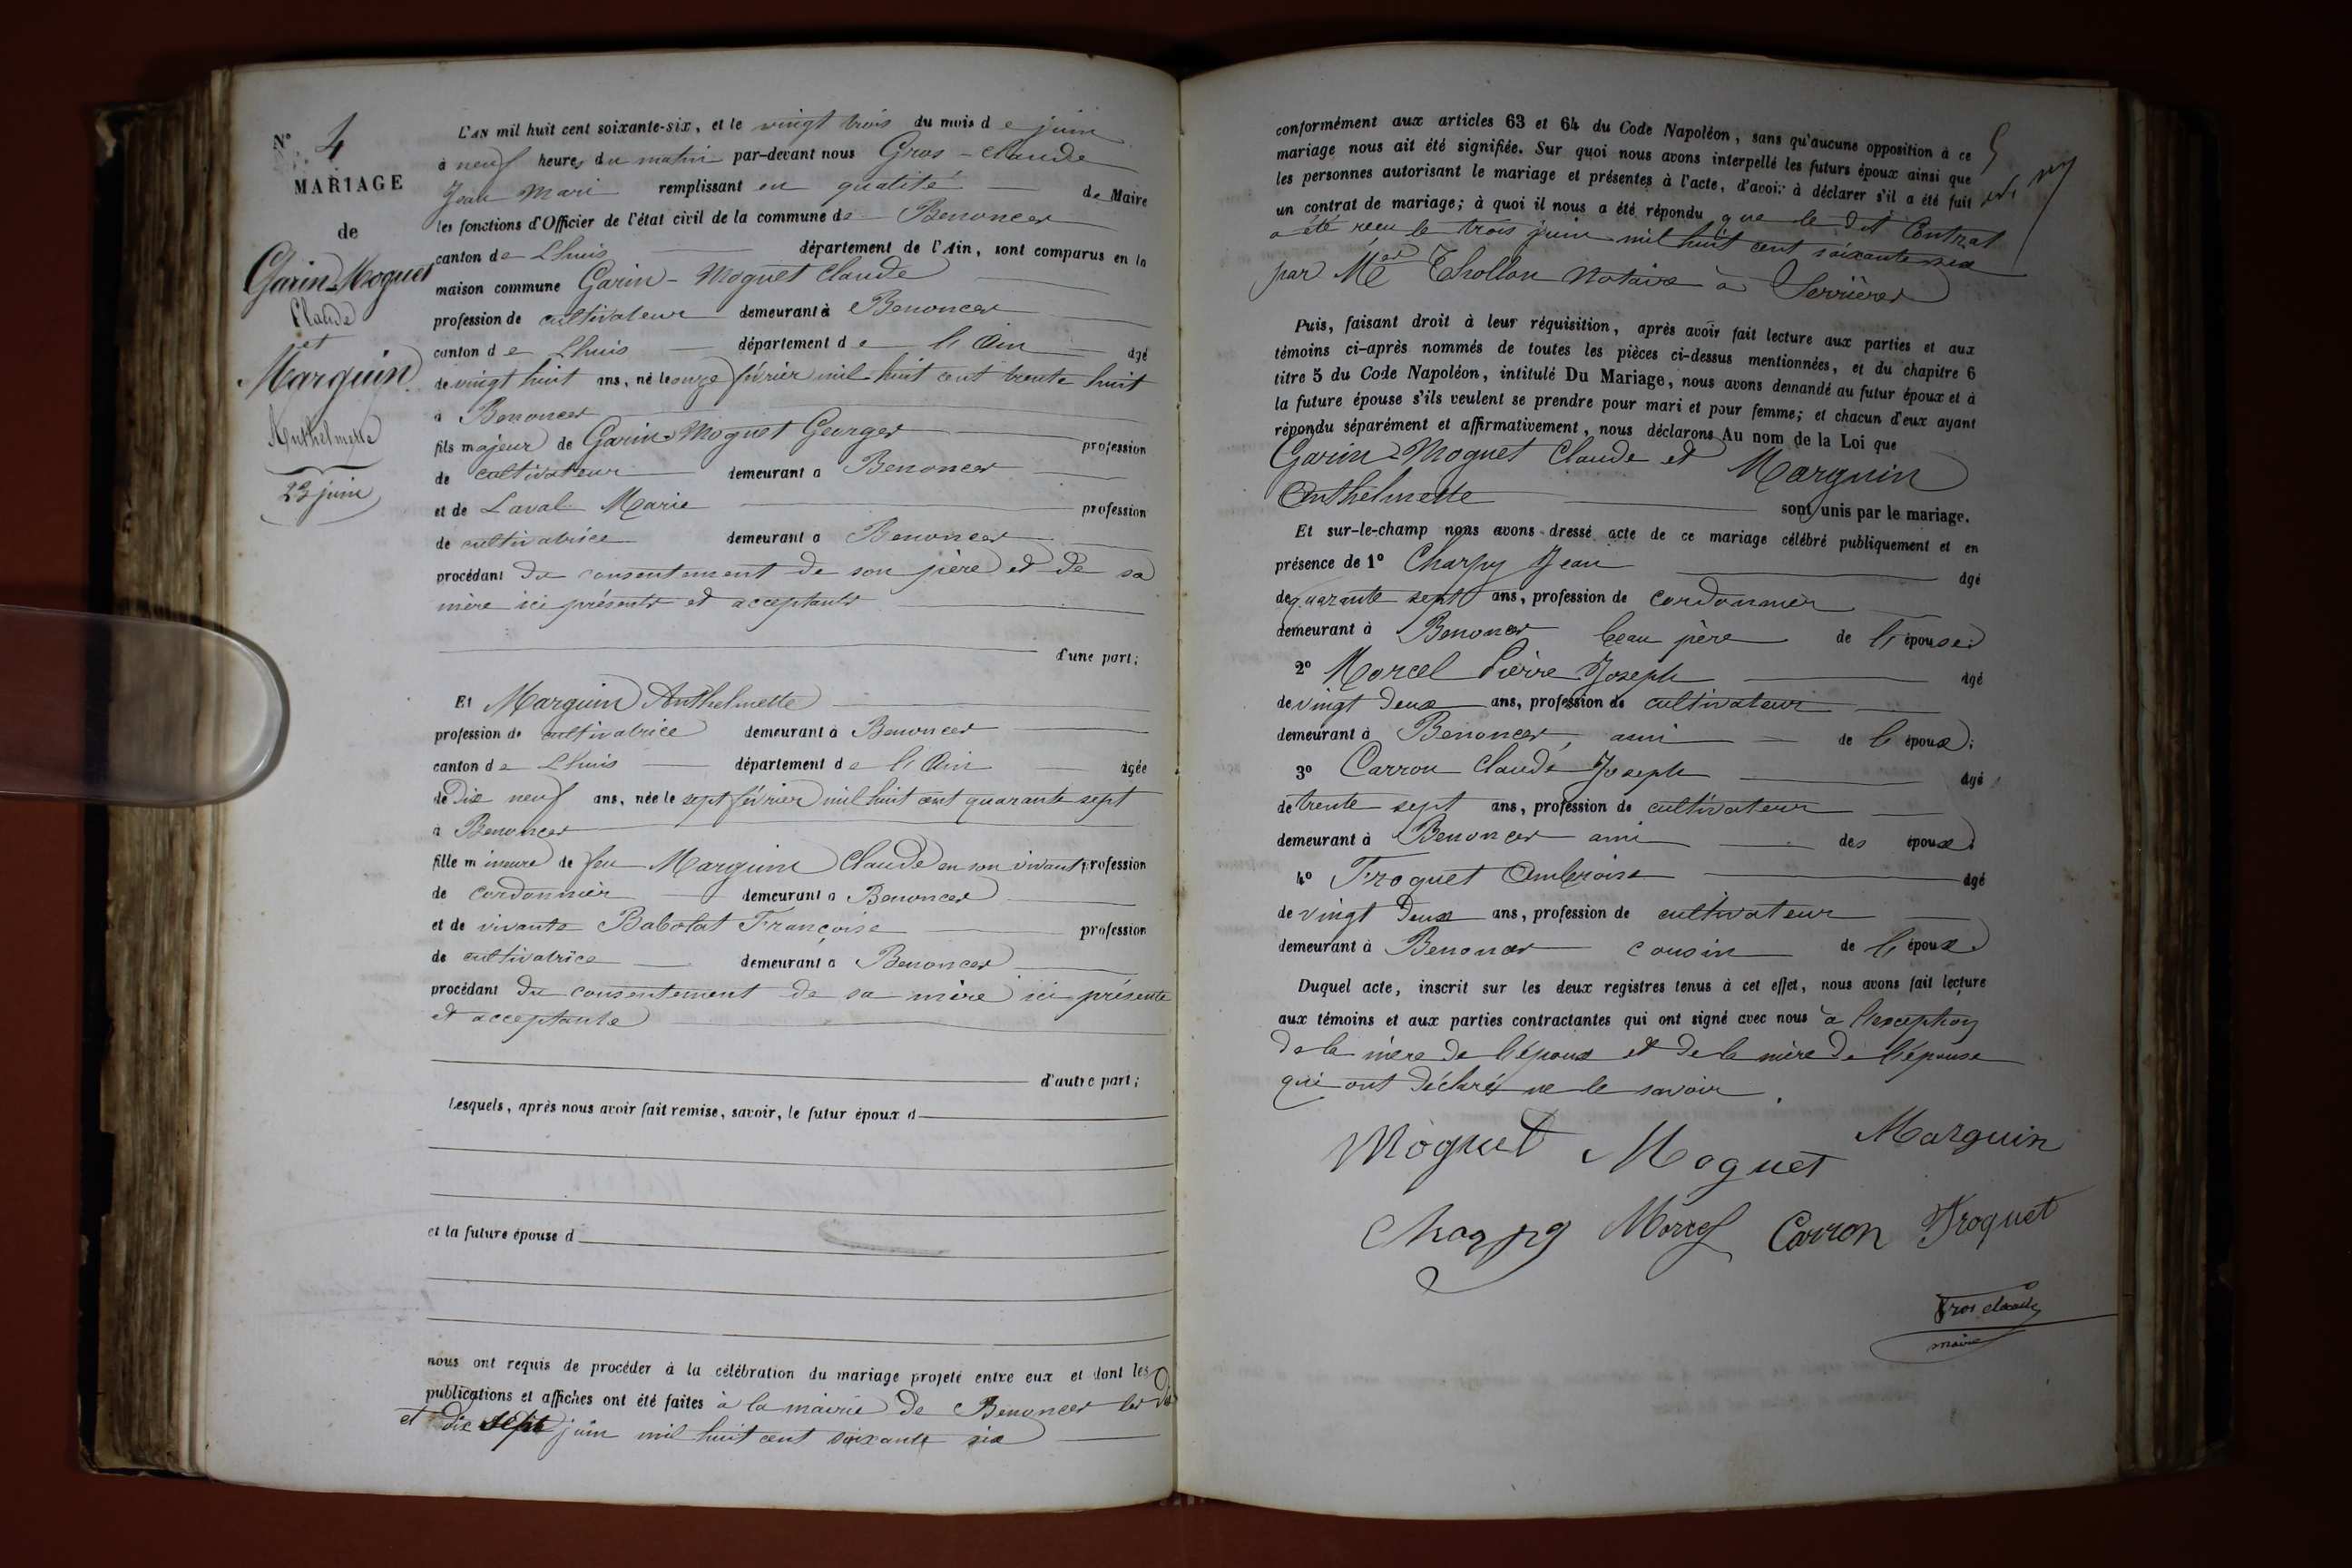 N° 4
MARIAGE
de
Garin-Moguet
Claude
et
Marguin
Anthelmette
23 juin
L'AN mil huit cent soixante-six, et le vingt trois du mois de juin
à neuf heures du matin par-devant nous Gros-Claude
Jean Mari remplissant en qualité de Maire
les fonctions d'Officier de l'état civil de la commune de Benonces
canton de Lhuis département de l'Ain, sont comparus en la
maison commune Garin-Moguet Claude
profession de cultivateur demeurant à Benonces
canton de Lhuis département de l'Ain âgé
de vingt huit ans, né le onze février mil huit cent trente huit
à Benonces
fils majeur de Garin-Moguet Georges profession
de cultivateur demeurant à Benonces
et de Laval Marie profession
de cultivatrice demeurant à Benonces
procédant du consentement de son père et de sa
mère ici présents et acceptants
d'une part;
Et Marguin Anthelmette
profession de cultivatrice demeurant à Benonces
canton de Lhuis département de l'Ain âgée
de Dix neuf ans, née le sept février mil huit cent quarante sept
à Benonces
fille mineure de feu Marguin Claude en son vivant profession
de cordonnier demeurant à Benonces
et de vivante Babolat Françoise profession
de cultivatrice demeurant à Benonces
procédant du consentement de sa mère ici présente
et acceptante
d'autre part;
Lesquels, après nous avoir fait remise, savoir, le futur époux d
et la future épouse d
nous ont requis de procéder à la célébration du mariage projeté entre eux et dont les
publications et affiches ont été faites à la mairie de Benonces les dix
et dix sept juin mil huit cent soixante six
conformément aux articles 63 et 64 du Code Napoléon, sans qu'aucune opposition à ce
mariage nous ait été signifiée. Sur quoi nous avons interpellé les futurs époux ainsi que
les personnes autorisant le mariage et présentes à l'acte, d'avoir à déclarer s'il a été fait
un contrat de mariage; à quoi il nous a été répondu que le dit Contrat
a été reçu le trois juin mil huit cent soixante six
par Me Thollon Notaire à Serrières
Puis, faisant droit à leur réquisition, après avoir fait lecture aux parties et aux
témoins ci-après nommés de toutes les pièces ci-dessus mentionnées, et du chapitre 6
titre 5 du Code Napoléon, intitulé Du Mariage, nous avons demandé au futur époux et à
la future épouse s'ils veulent se prendre pour mari et pour femme; et chacun d'eux ayant
répondu séparément et affirmativement, nous déclarons Au nom de la Loi que
Garin-Moguet Claude et Marguin
Anthelmette sont unis par le mariage.
Et sur-le-champ nous avons dressé acte de ce mariage célébré publiquement et en
présence de 1° Charpy Jean âgé
de quarante sept ans, profession de cordonnier
demeurant à Benonces beau père de l'épouse;
2° Morcel Pierre Joseph âgé
de vingt deux ans, profession de cultivateur
demeurant à Benonces, ami de l'époux;
3° Carron Claude Joseph âgé
de trente sept ans, profession de cultivateur
demeurant à Benonces ami des époux;
4° Troquet Ambroise âgé
de vingt deux ans, profession de cultivateur
demeurant à Benonces cousin de l'époux
Duquel acte, inscrit sur les deux registres tenus à cet effet, nous avons fait lecture
aux témoins et aux parties contractantes qui ont signé avec nous à l'exception
de la mère de l'époux et de la mère de l'épouse
qui ont déclaré ne le savoir.
Moguet Moguet Marguin
Charpy Morcel Carron Troquet
Gros Claude
maire